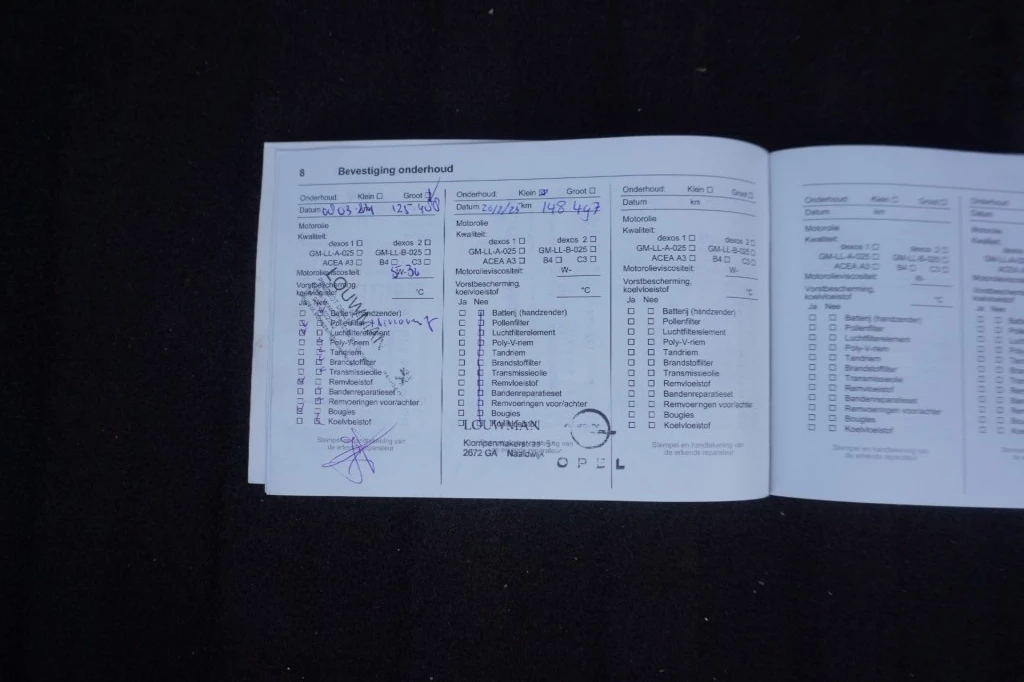 8 Bevestiging onderhoud
Onderhoud: Klein ☐ Groot ☑
Datum 08 03 24 125 408
Motorolie
Kwaliteit:
dexos 1 ☐ dexos 2 ☐
GM-LL-A-025 ☐ GM-LL-B-025 ☐
ACEA A3 ☐ B4 ☐ C3 ☐
Motorolieviscositeit: 5W-30
Vorstbescherming,
koelvloeistof °C
Ja Nee
Batterij (handzender)
Pollenfilter
Luchtfilterelement
Poly-V-riem
Tandriem
Brandstoffilter
Transmissieolie
Remvloeistof
Bandenreparatieset
Remvoeringen voor/achter
Bougies
Koelvloeistof
LOUWMAN
Stempel en handtekening van
de erkende reparateur
Onderhoud: Klein ☑ Groot ☐
Datum km 148 497
Motorolie
Kwaliteit:
dexos 1 ☐ dexos 2 ☐
GM-LL-A-025 ☐ GM-LL-B-025 ☐
ACEA A3 ☐ B4 ☐ C3 ☐
Motorolieviscositeit: W-
Vorstbescherming,
koelvloeistof °C
Ja Nee
Batterij (handzender)
Pollenfilter
Luchtfilterelement
Poly-V-riem
Tandriem
Brandstoffilter
Transmissieolie
Remvloeistof
Bandenreparatieset
Remvoeringen voor/achter
Bougies
Koelvloeistof
LOUWMAN
Klompenmakerstraat
2672 GA Naaldwijk
OPEL
Onderhoud: Klein ☐ Groot ☐
Datum km
Motorolie
Kwaliteit:
dexos 1 ☐ dexos 2 ☐
GM-LL-A-025 ☐ GM-LL-B-025 ☐
ACEA A3 ☐ B4 ☐ C3 ☐
Motorolieviscositeit: W-
Vorstbescherming,
koelvloeistof °C
Ja Nee
Batterij (handzender)
Pollenfilter
Luchtfilterelement
Poly-V-riem
Tandriem
Brandstoffilter
Transmissieolie
Remvloeistof
Bandenreparatieset
Remvoeringen voor/achter
Bougies
Koelvloeistof
Stempel en handtekening van
de erkende reparateur
Onderhoud: Klein ☐ Groot ☐
Datum km
Motorolie
Kwaliteit:
dexos 1 ☐ dexos 2 ☐
GM-LL-A-025 ☐ GM-LL-B-025 ☐
ACEA A3 ☐ B4 ☐ C3 ☐
Motorolieviscositeit: W-
Vorstbescherming,
koelvloeistof °C
Ja Nee
Batterij (handzender)
Pollenfilter
Luchtfilterelement
Poly-V-riem
Tandriem
Brandstoffilter
Transmissieolie
Remvloeistof
Bandenreparatieset
Remvoeringen voor/achter
Bougies
Koelvloeistof
Stempel en handtekening van
de erkende reparateur
Onderhoud:
Datum
Motorolie
Kwaliteit: